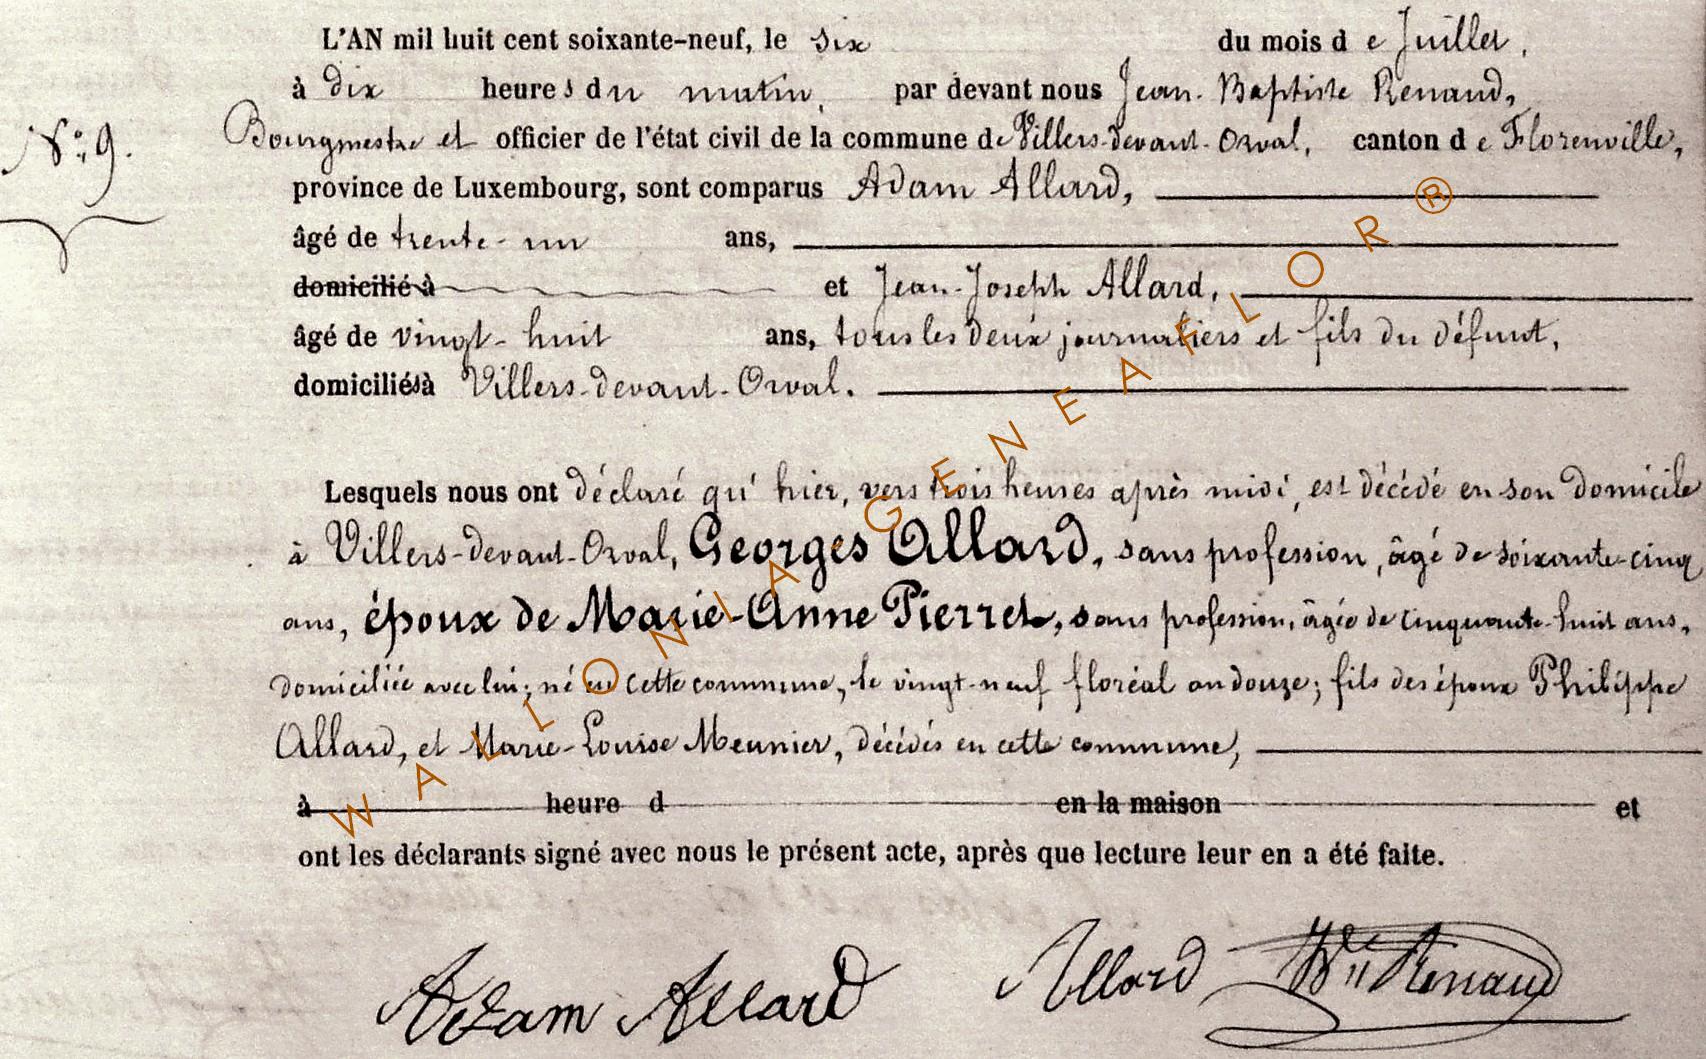 L'AN mil huit cent soixante-neuf, le six du mois de Juillet,
à dix heures du matin, par devant nous Jean-Baptiste Renaud,
N.° 9.
Bourgmestre et officier de l'état civil de la commune de Villers-devant-Orval, canton de Florenville,
province de Luxembourg, sont comparus Adam Allard,
âgé de trente-un ans,
domicilié à et Jean-Joseph Allard,
âgé de vingt-huit ans, tous les deux journaliers et fils du défunt,
domiciliés à Villers-devant-Orval.
Lesquels nous ont déclaré qu'hier, vers trois heures après midi, est décédé en son domicile
à Villers-devant-Orval, Georges Allard, sans profession, âgé de soixante-cinq
ans, époux de Marie-Anne Pierret, sans profession, âgée de cinquante-huit ans,
domiciliée avec lui; né en cette commune, le vingt-neuf floréal an douze; fils des époux Philippe
Allard, et Marie-Louise Meunier, décédés en cette commune,
à heure d en la maison et
ont les déclarants signé avec nous le présent acte, après que lecture leur en a été faite.
Adam Allard Allard Renaud
WALLONIA-GENEAFLOR®